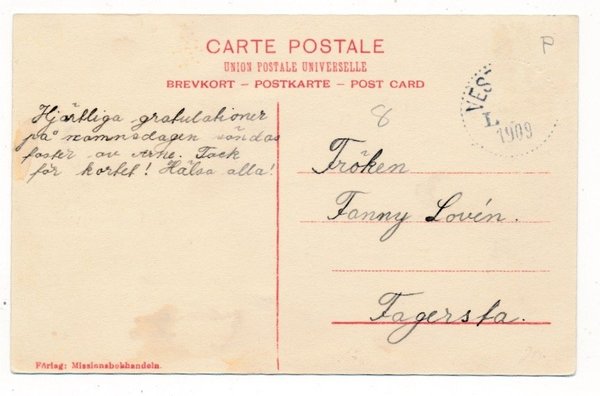 CARTE POSTALE
UNION POSTALE UNIVERSELLE
BREVKORT – POSTKARTE – POST CARD
P
8
VEST
L
1909
Hjärtliga gratulationer
på namnsdagen sändas
faster av Arne. Tack
för kortet! Hälsa alla!
Fröken
Fanny Lovén.
Fagersta.
Förlag: Missionsbokhandeln.